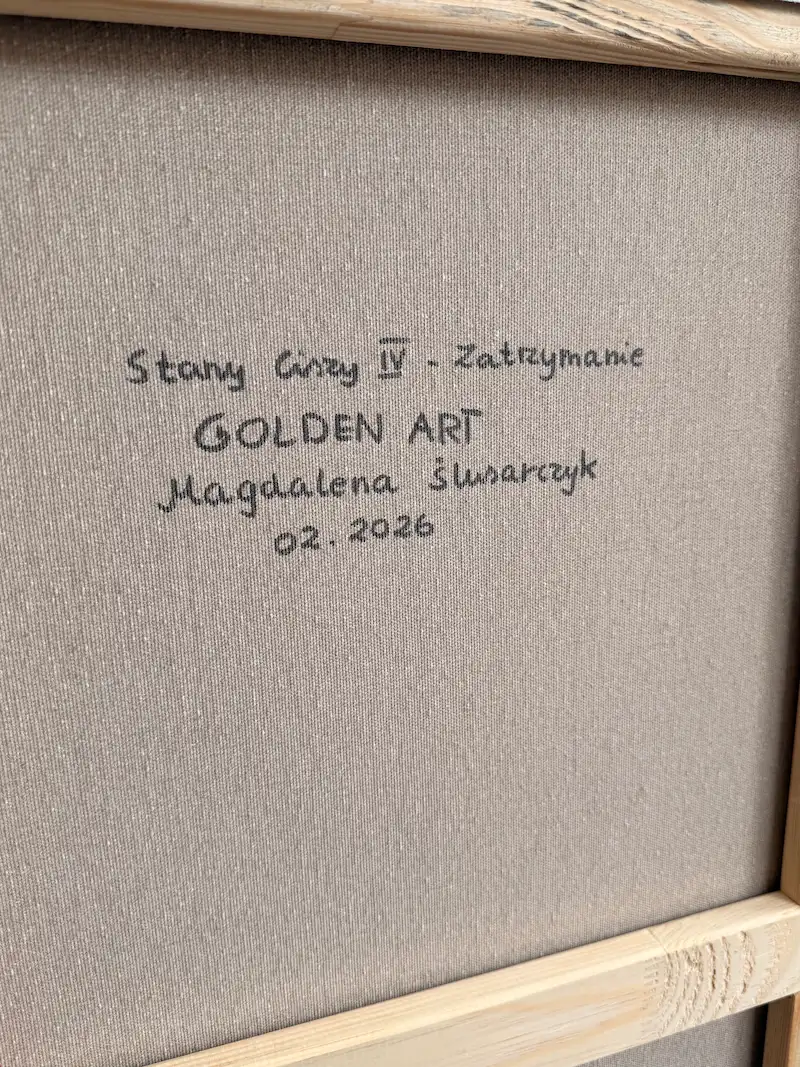 Stany Ciszy IV - Zatrzymanie
GOLDEN ART
Magdalena Ślusarczyk
02.2026